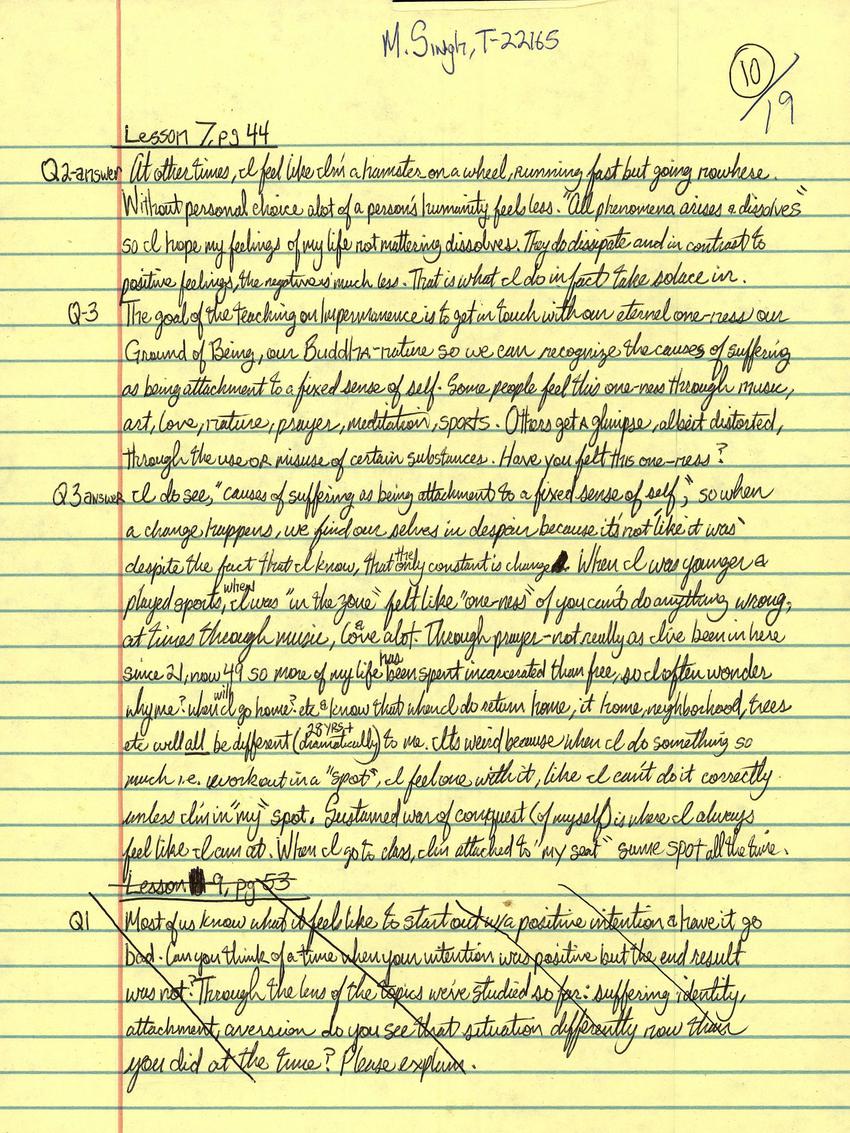 M. Singh, T-22165
10/19
Lesson 7, pg 44
Q2-answer At other times, I feel like I'm a hamster on a wheel, running fast but going nowhere.
Without personal choice alot of a person's humanity feels less. "All phenomena arises & dissolves"
so I hope my feelings of my life not mattering dissolves. They do dissipate and in contrast to
positive feelings, the negative is much less. That is what I do in fact take solace in.
Q-3 The goal of the teaching on Impermanence is to get in touch with our eternal one-ness our
Ground of Being, our Buddha-nature so we can recognize the causes of suffering
as being attachment to a fixed sense of self. Some people feel this one-ness through music,
art, love, nature, prayer, meditation, sports. Others get a glimpse, albeit distorted,
through the use or misuse of certain substances. Have you felt this one-ness?
Q3 answer I do see, "causes of suffering as being attachment to a fixed sense of self," so when
a change happens, we find our selves in despair because it's not "like it was"
despite the fact that I know, that the only constant is change. When I was younger &
played sports, when I was "in the zone" felt like "one-ness" of you can't do anything wrong,
at times through music, love a alot. Through prayer-not really as I've been in here
since 21, now 49 so more of my life has been spent incarcerated than free, so I often wonder
why me? when will I go home? etc & know that when I do return home, it home, neighborhood, trees
etc will all be different (28 YRS+ dramatically) to me. It's weird because when I do something so
much i.e. workout in a "spot", I feel one with it, like I can't do it correctly
unless I'm in "my" spot. Sustained war of conquest (of myself) is where I always
feel like I am at. When I go to class, I'm attached to "my seat" same spot all the time.
Lesson 9, pg 53
Q1 Most of us know what it feels like to start out w/a positive intention & have it go
bad. Can you think of a time when your intention was positive but the end result
was not? Through the lens of the topics we've studied so far: suffering identity,
attachment, aversion do you see that situation differently now than
you did at the time? Please explain.